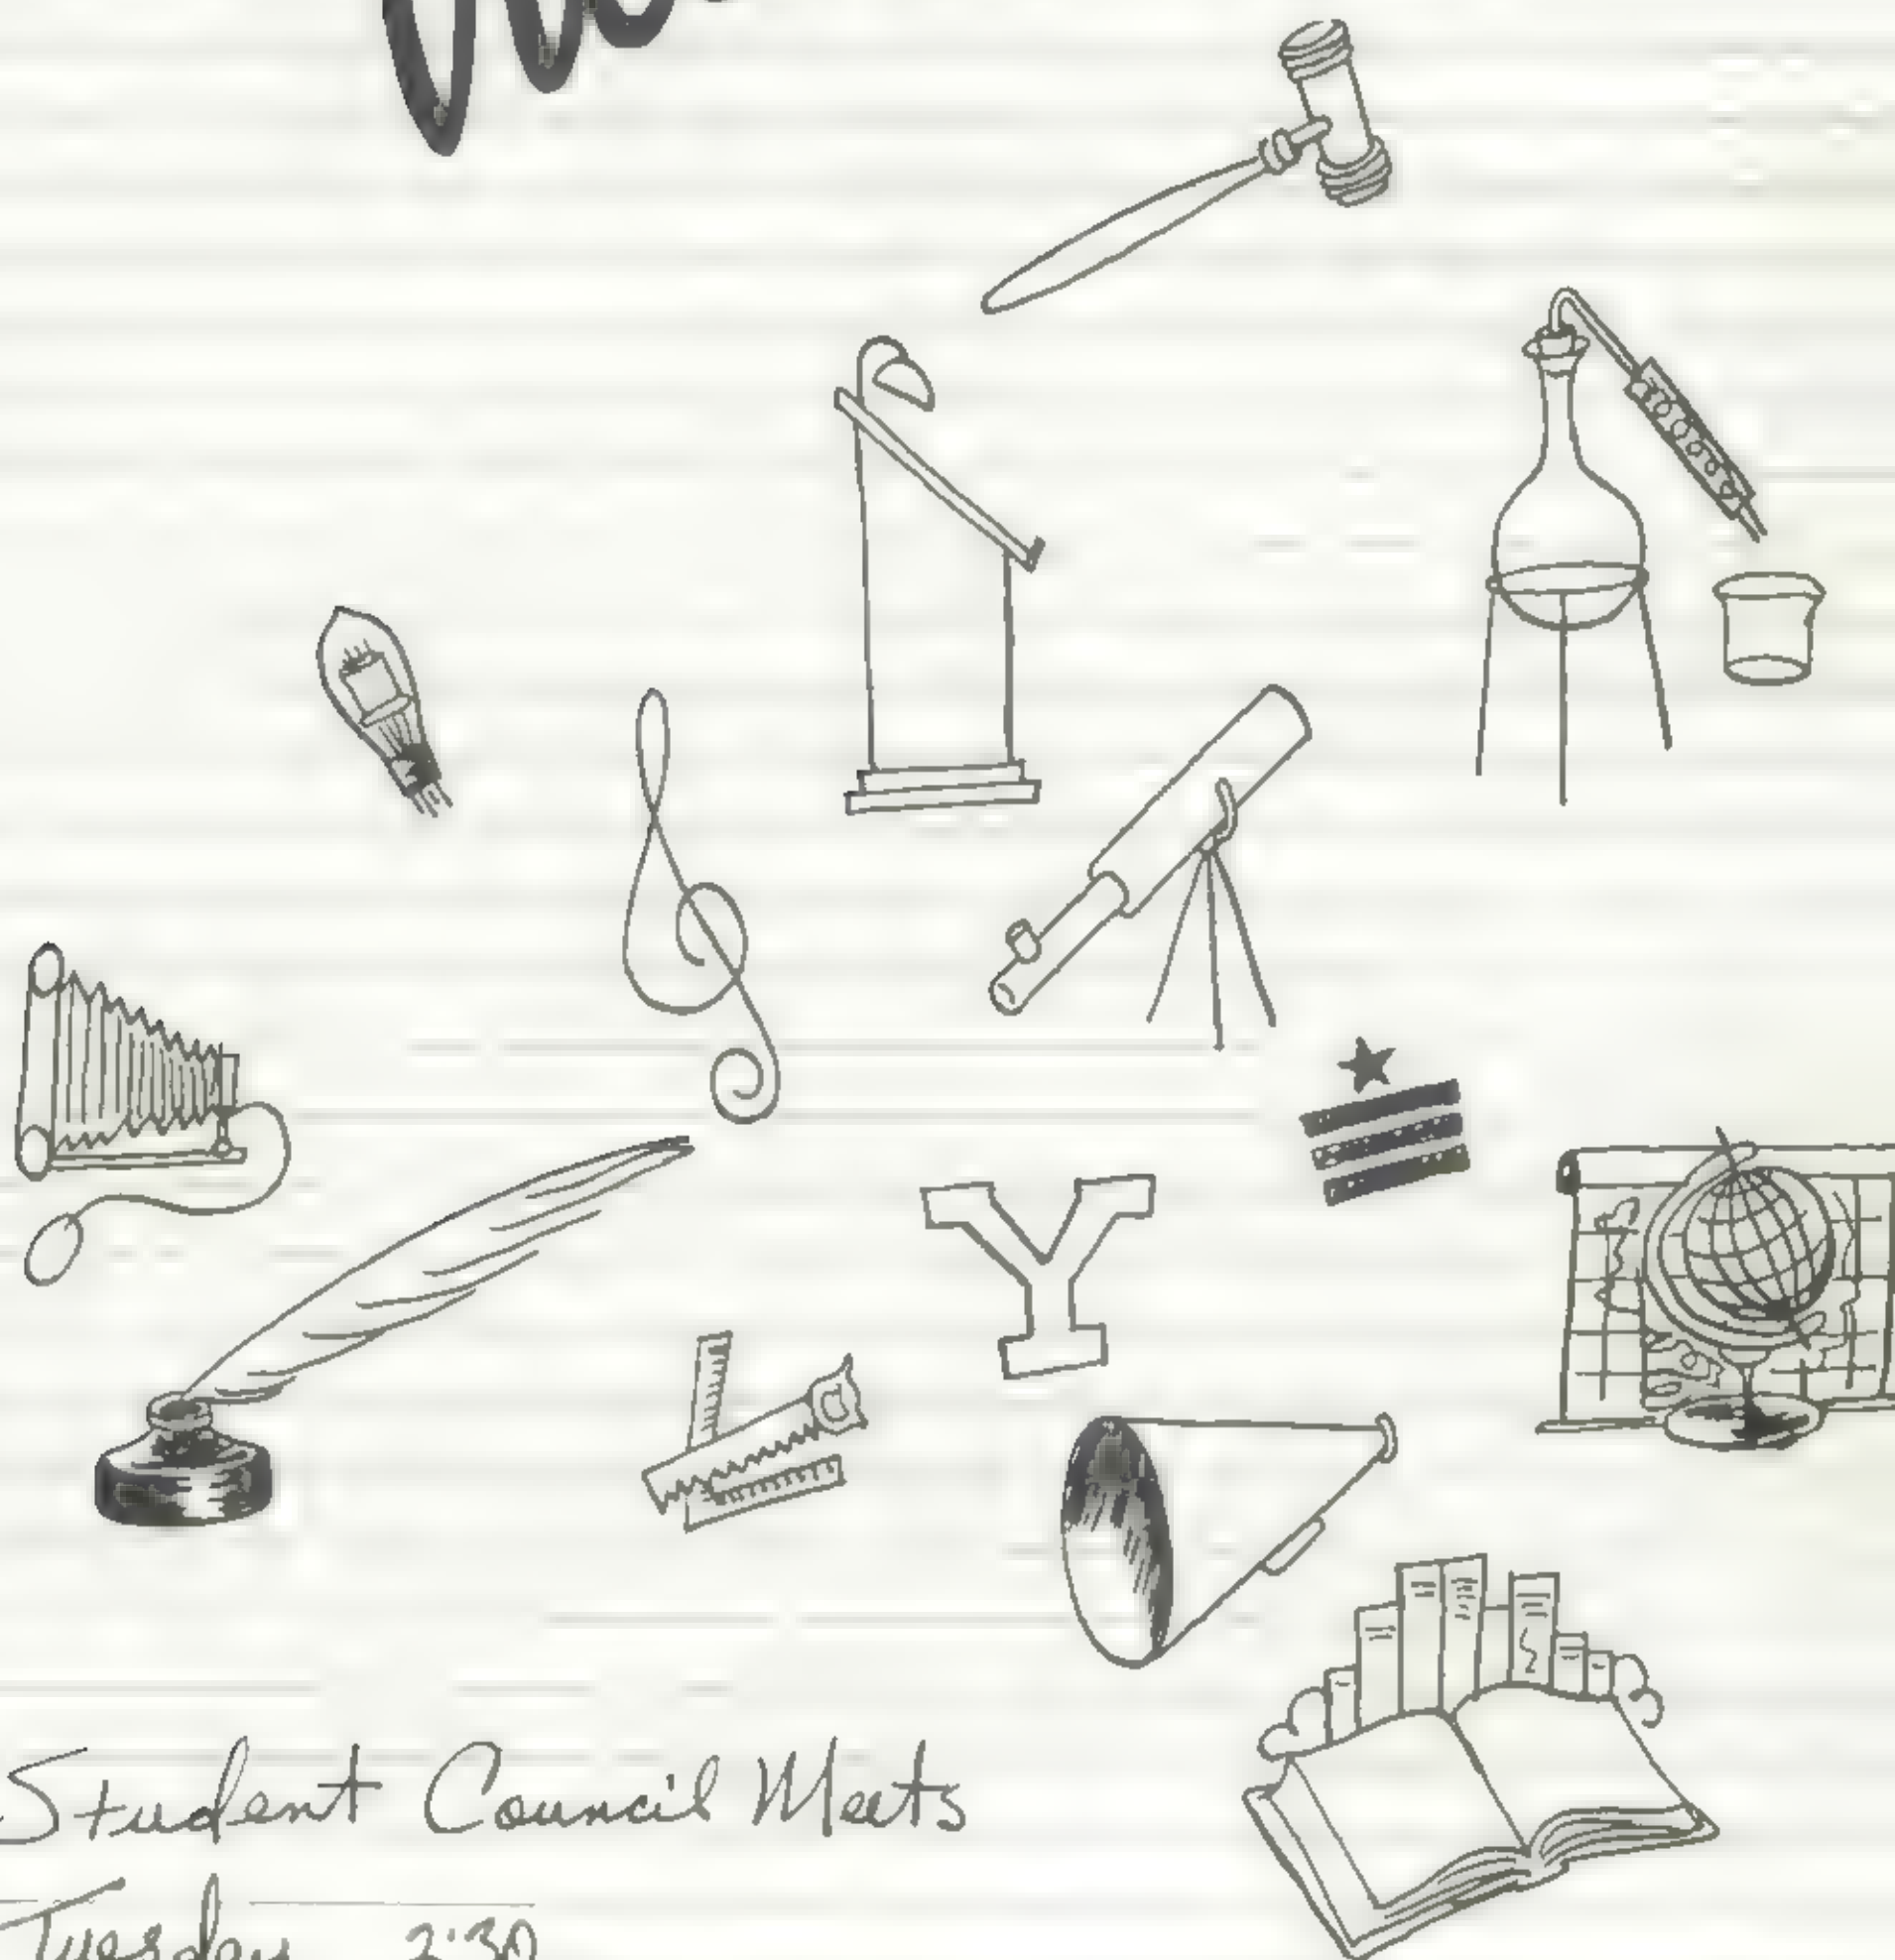 Y
Student Council Meets
Tuesday 2:30